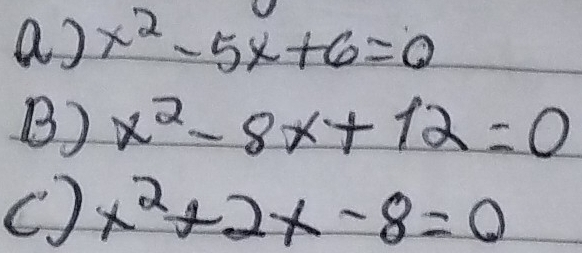 a) x² - 5x + 6 = 0
B) x² - 8x + 12 = 0
C) x² + 2x - 8 = 0